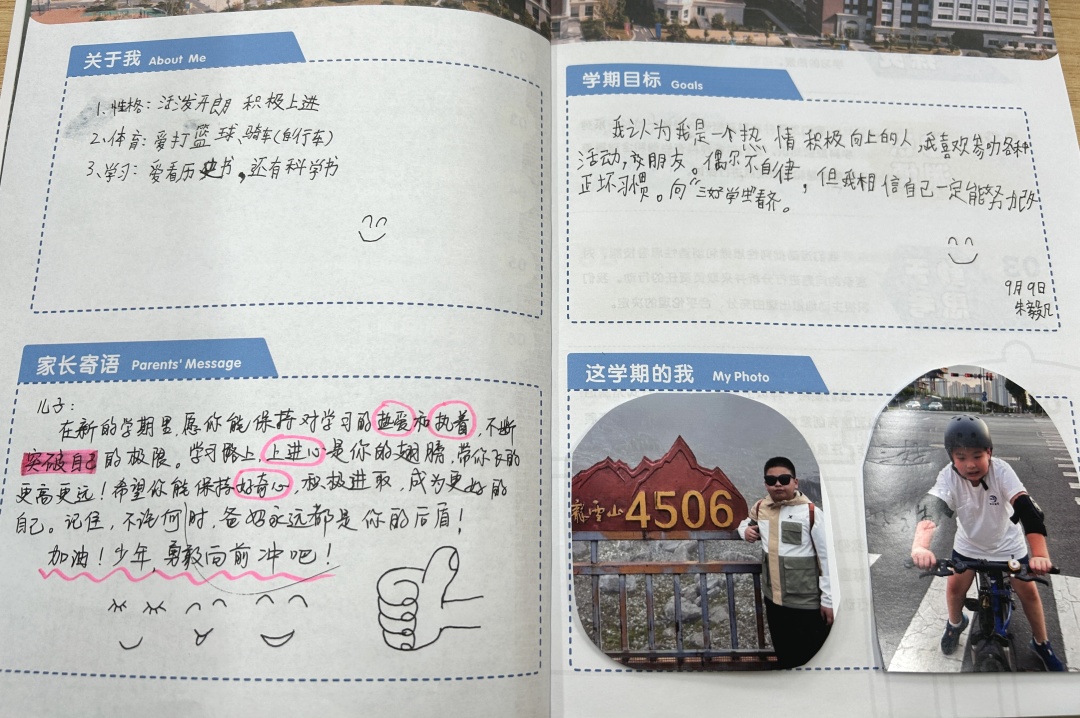 关于我 About Me
1、性格：活泼开朗 积极上进
2、体育：爱打篮球、骑车(自行车)
3、学习：爱看历史书，还有科学书
家长寄语 Parents' Message
儿子：
在新的学期里，愿你能保持对学习的热爱和执着，不断
突破自己的极限。学习路上，上进心是你的翅膀，带你飞的
更高更远！希望你能保持好奇心，积极进取，成为更好的
自己。记住，不论何时，爸妈永远都是你的后盾！
加油！少年，勇毅向前冲吧！
学期目标 Goals
我认为我是一个热情积极向上的人，我喜欢参加各种
活动，交朋友。偶尔不自律，但我相信自己一定能努力改
正坏习惯。向“三好学生”看齐。
9月9日
朱毅凡
这学期的我 My Photo
雪山 4506